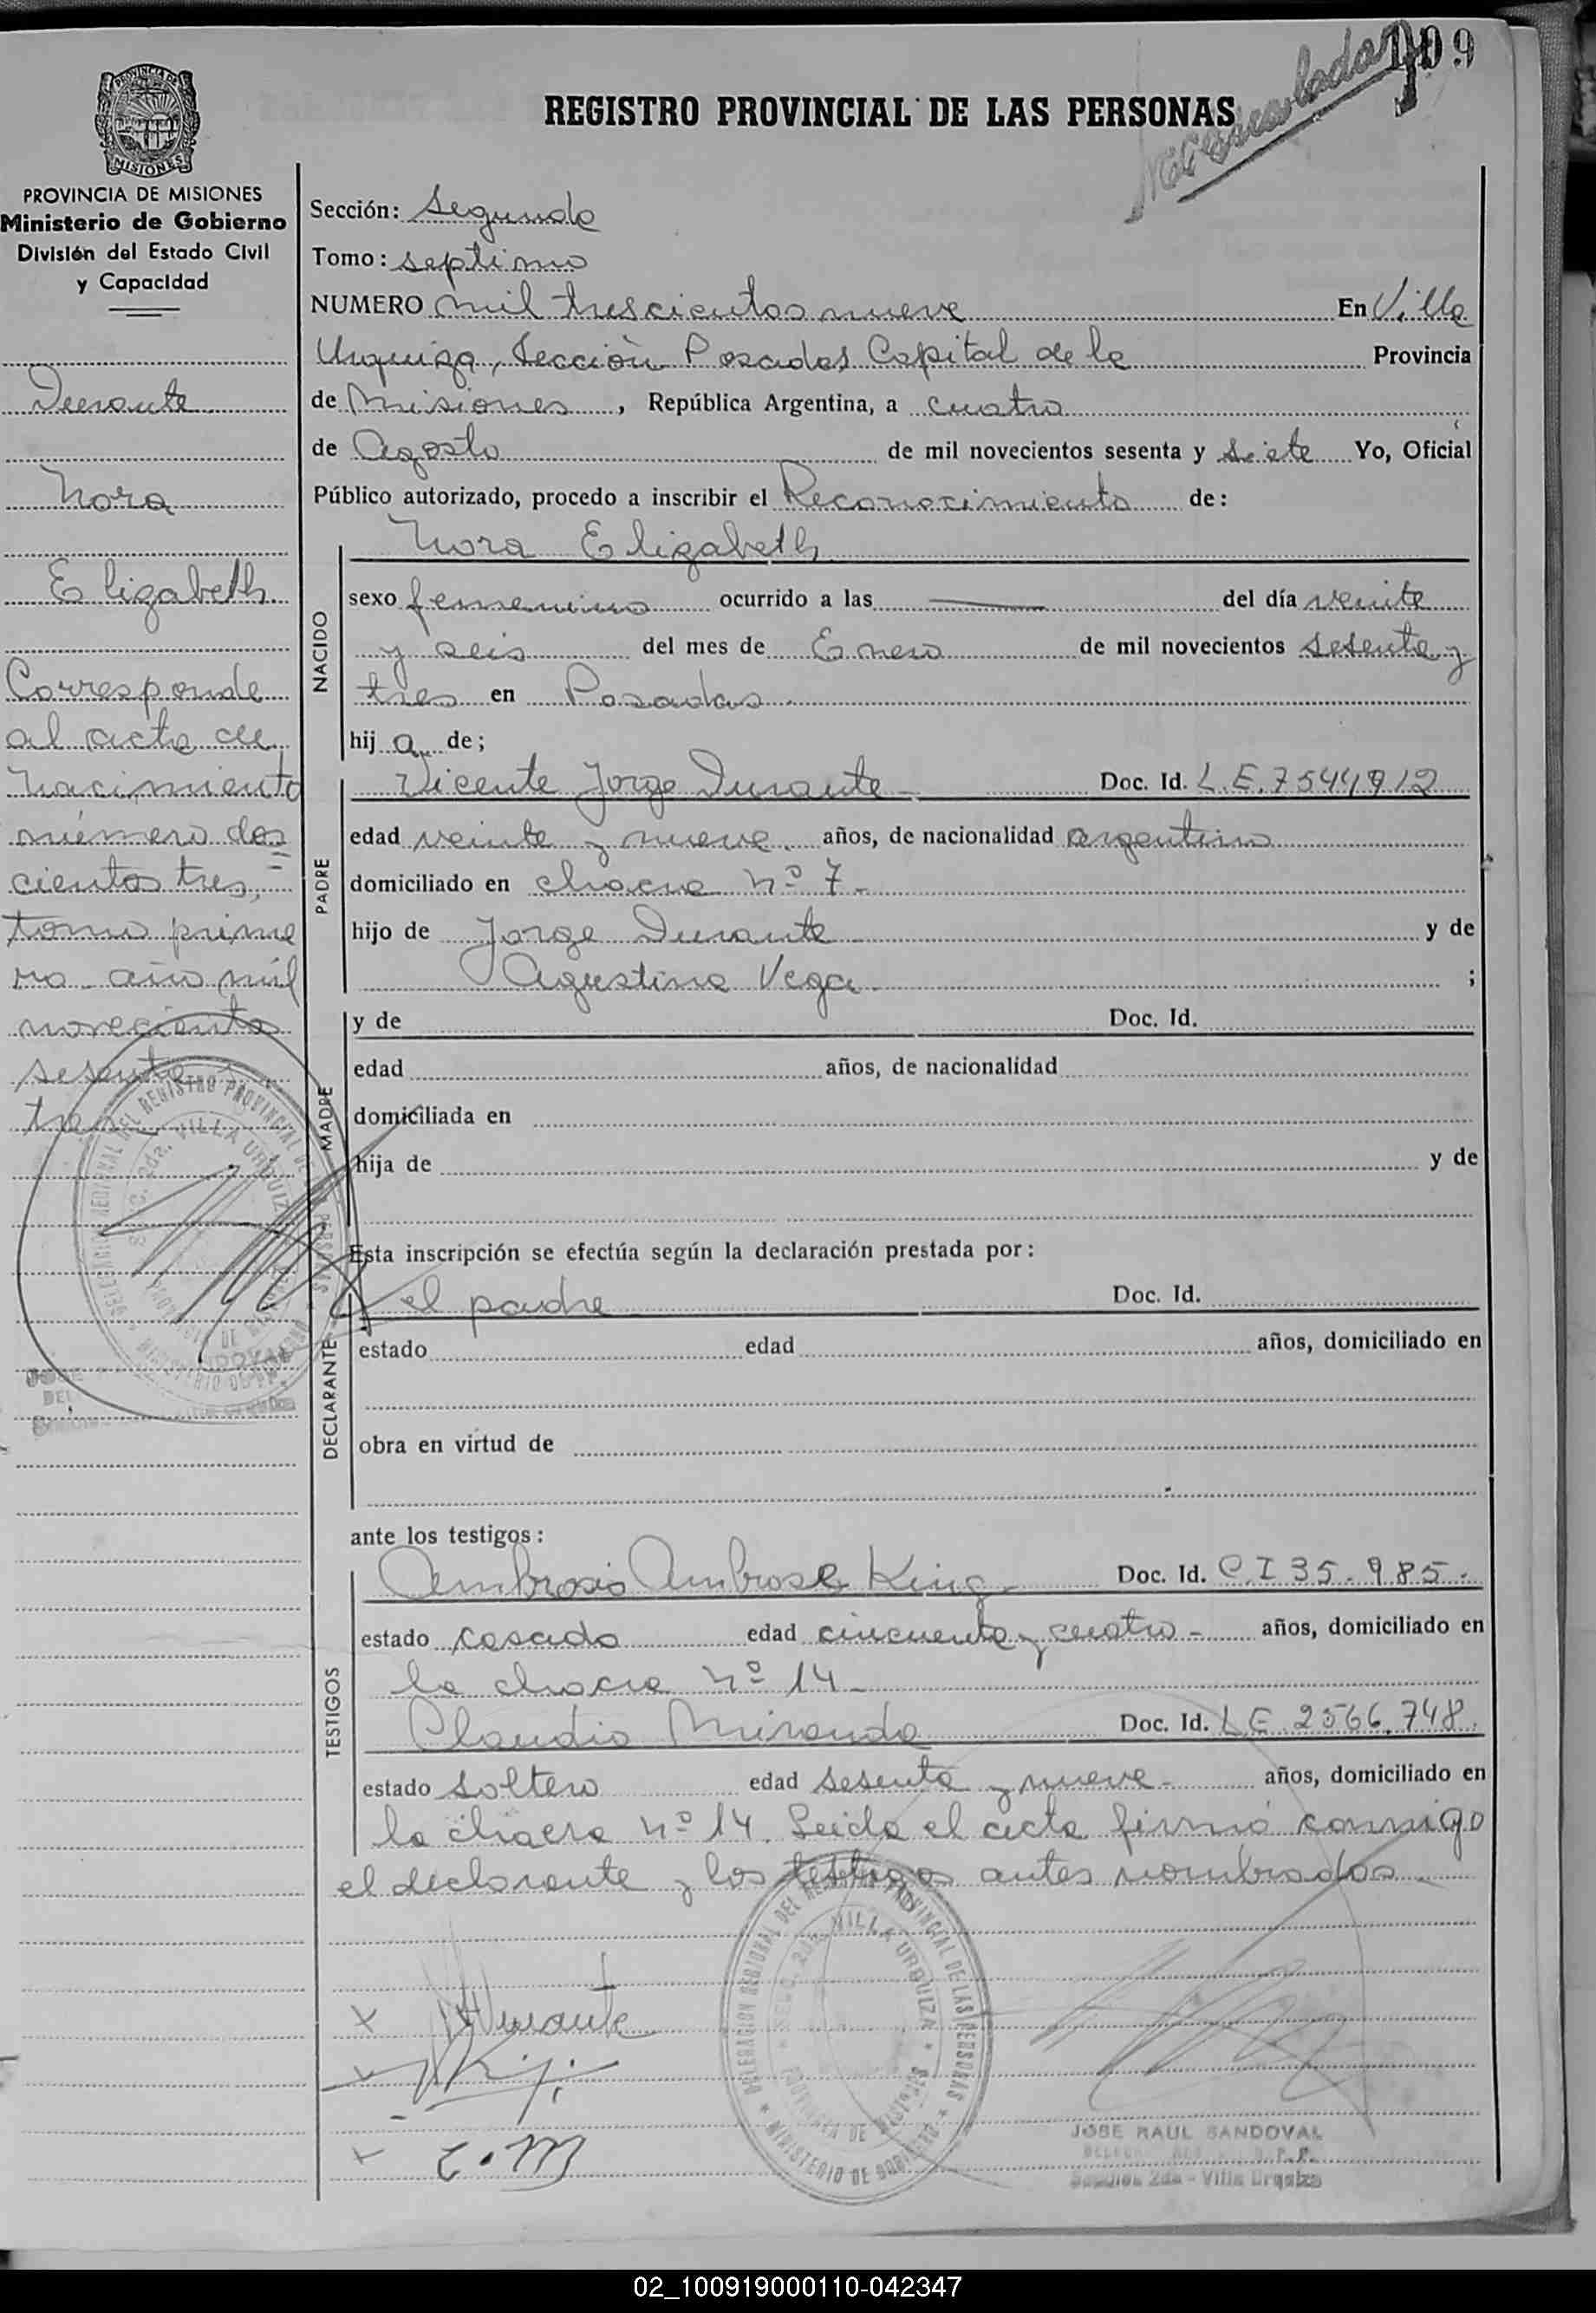 109
Mecanografiada
REGISTRO PROVINCIAL DE LAS PERSONAS
PROVINCIA DE MISIONES
Ministerio de Gobierno
División del Estado Civil
y Capacidad
Durante
Nora
Elizabeth
Corresponde
al acta de
nacimiento
número dos
cientos tres,
tomo prime
ro año mil
novecientos
sesenta
tres
Sección: Segunda
Tomo: septimo
NUMERO mil trescientos nueve En Villa
Urquiza, Sección Posadas Capital de la Provincia
de Misiones, República Argentina, a cuatro
de Agosto de mil novecientos sesenta y siete Yo, Oficial
Público autorizado, procedo a inscribir el Reconocimiento de:
NACIDO
Nora Elizabeth
sexo femenino ocurrido a las — del día veinte
y seis del mes de Enero de mil novecientos sesenta y
tres en Posadas.
hija de;
PADRE
Vicente Jorge Durante - Doc. Id. L.E. 7544912
edad veinte y nueve. años, de nacionalidad argentino
domiciliado en chacra Nº 7-
hijo de Jorge Durante y de
Agustina Vega. ;
MADRE
y de Doc. Id.
edad años, de nacionalidad
domiciliada en
hija de y de
Esta inscripción se efectúa según la declaración prestada por:
DECLARANTE
el padre Doc. Id.
estado edad años, domiciliado en
obra en virtud de
ante los testigos:
TESTIGOS
Ambrosio Ambrose King Doc. Id. C.I 35.985.
estado casado edad cincuenta y cuatro - años, domiciliado en
la chacra Nº 14-
Claudio Miranda Doc. Id. LE 2566.748.
estado soltero edad sesenta y nueve- años, domiciliado en
la chacra Nº 14. Leida el acta firmó conmigo
el declarante y los testigos antes nombrados
x Durante
x
x C.M
DELEGACION REGIONAL DEL REGISTRO PROVINCIAL DE LAS PERSONAS
SECC. 2da. VILLA URQUIZA
PROVINCIA DE MISIONES
MINISTERIO DE GOBIERNO
JOSE RAUL SANDOVAL
Sección 2da - Villa Urquiza
02_100919000110-042347